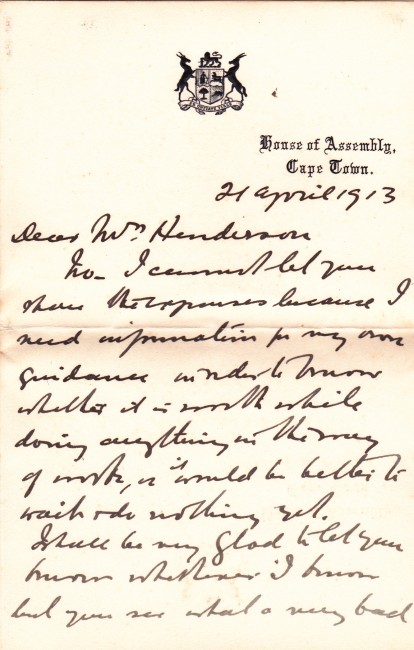 House of Assembly,
Cape Town.
21 April 1913
Dear Mrs Henderson
No — I cannot let you
share the expenses because I
need information for my own
guidance in order to know
whether it is worth while
doing anything in the way
of work, or it would be better to
wait & do nothing yet.
I shall be very glad to let you
know whatever I know
but you see what a very bad